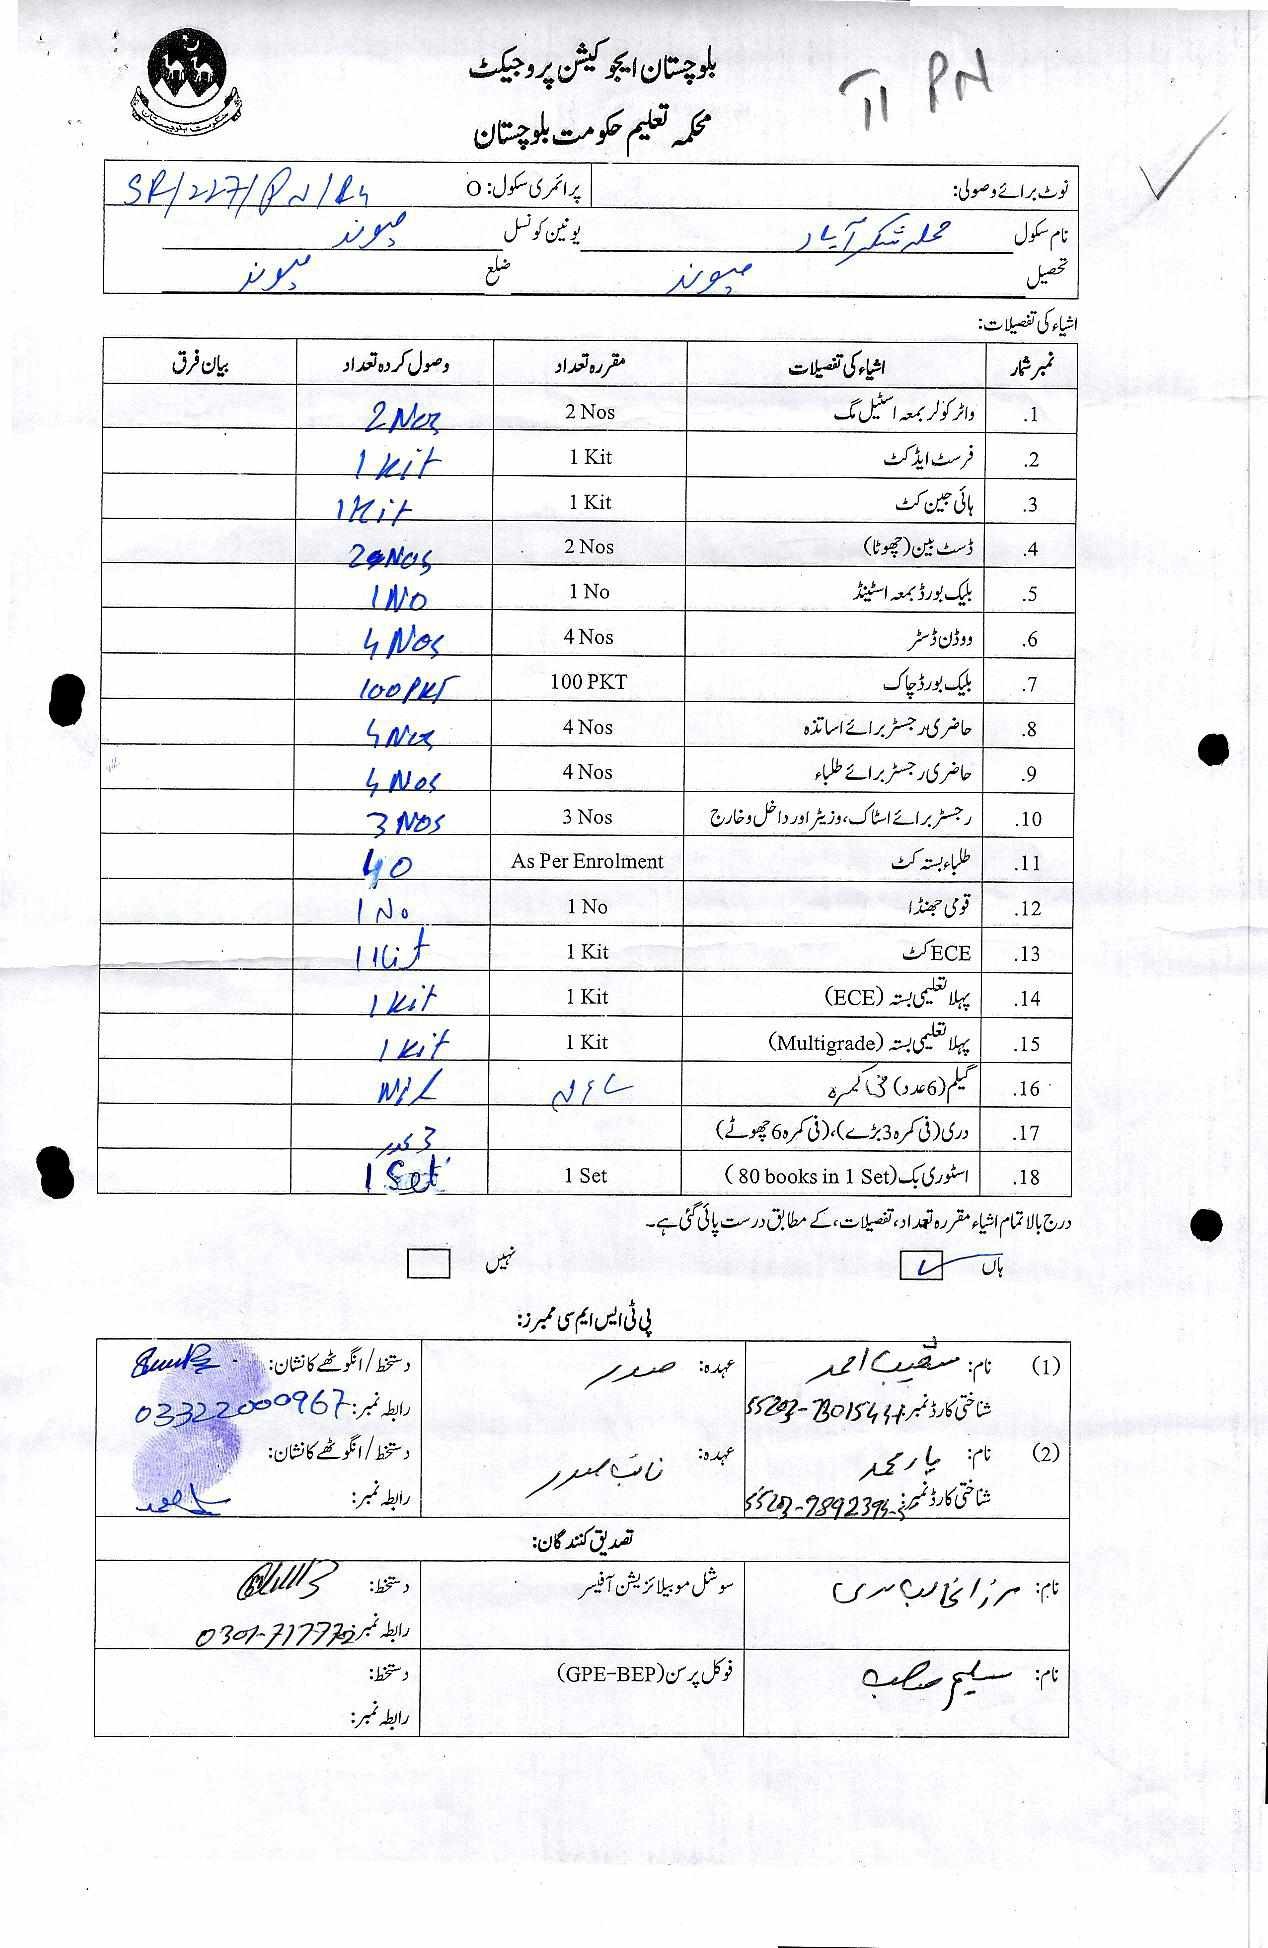 بلوچستان ایجوکیشن پروجیکٹ
II PN
محکمہ تعلیم حکومت بلوچستان
نوٹ برائے وصولی: پرائمری سکول: O SR/227/PN/R4
نام سکول محلہ شکر آباد یونین کونسل میوند
تحصیل میوند ضلع میوند
اشیاء کی تفصیلات:
نمبر شمار اشیاء کی تفصیلات مقررہ تعداد وصول کردہ تعداد بیان فرق
1. واٹر کولر بمعہ اسٹیل مگ 2 Nos 2 Nos
2. فرسٹ ایڈ کٹ 1 Kit 1 Kit
3. ہائی جین کٹ 1 Kit 1 Kit
4. ڈسٹ بین (چھوٹا) 2 Nos 2 Nos
5. بلیک بورڈ بمعہ اسٹینڈ 1 No 1 No
6. ووڈن ڈسٹر 4 Nos 4 Nos
7. بلیک بورڈ چاک 100 PKT 100 PKT
8. حاضری رجسٹر برائے اساتذہ 4 Nos 4 Nos
9. حاضری رجسٹر برائے طلباء 4 Nos 4 Nos
10. رجسٹر برائے اسٹاک، وزیٹر اور داخل و خارج 3 Nos 3 Nos
11. طلباء بستہ کٹ As Per Enrolment 40
12. قومی جھنڈا 1 No 1 No
13. ECE کٹ 1 Kit 1 Kit
14. پہلا تعلیمی بستہ (ECE) 1 Kit 1 Kit
15. پہلا تعلیمی بستہ (Multigrade) 1 Kit 1 Kit
16. گیلم (6 عدد) فی کمرہ NIL NIL
17. دری (فی کمرہ 3 بڑے)، (فی کمرہ 6 چھوٹے) 3 عدد
18. اسٹوری بک (80 books in 1 Set) 1 Set 1 Set
درج بالا تمام اشیاء مقررہ تعداد، تفصیلات، کے مطابق درست پائی گئی ہے۔
ہاں نہیں
پی ٹی ایس ایم سی ممبرز:
(1) نام: عہدہ: صدر دستخط / انگوٹھے کا نشان:
شناختی کارڈ نمبر: رابطہ نمبر: 03322000967
(2) نام: یار محمد عہدہ: نائب صدر دستخط / انگوٹھے کا نشان:
شناختی کارڈ نمبر: رابطہ نمبر:
تصدیق کنندگان:
نام: سوشل موبیلائزیشن آفیسر دستخط:
رابطہ نمبر:
نام: سلیم صاحب فوکل پرسن (GPE-BEP) دستخط:
رابطہ نمبر: